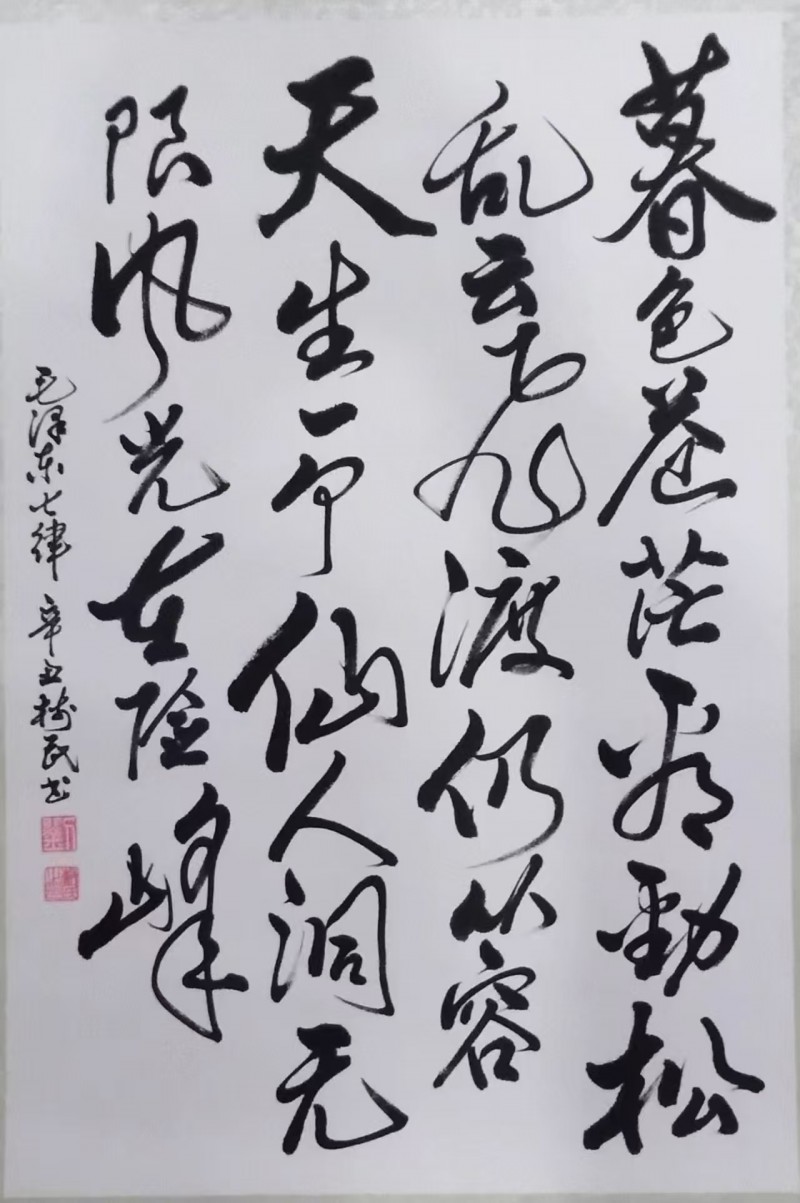 暮色苍茫看劲松
乱云飞渡仍从容
天生一个仙人洞无
限风光在险峰
毛泽东七律 辛丑 民书